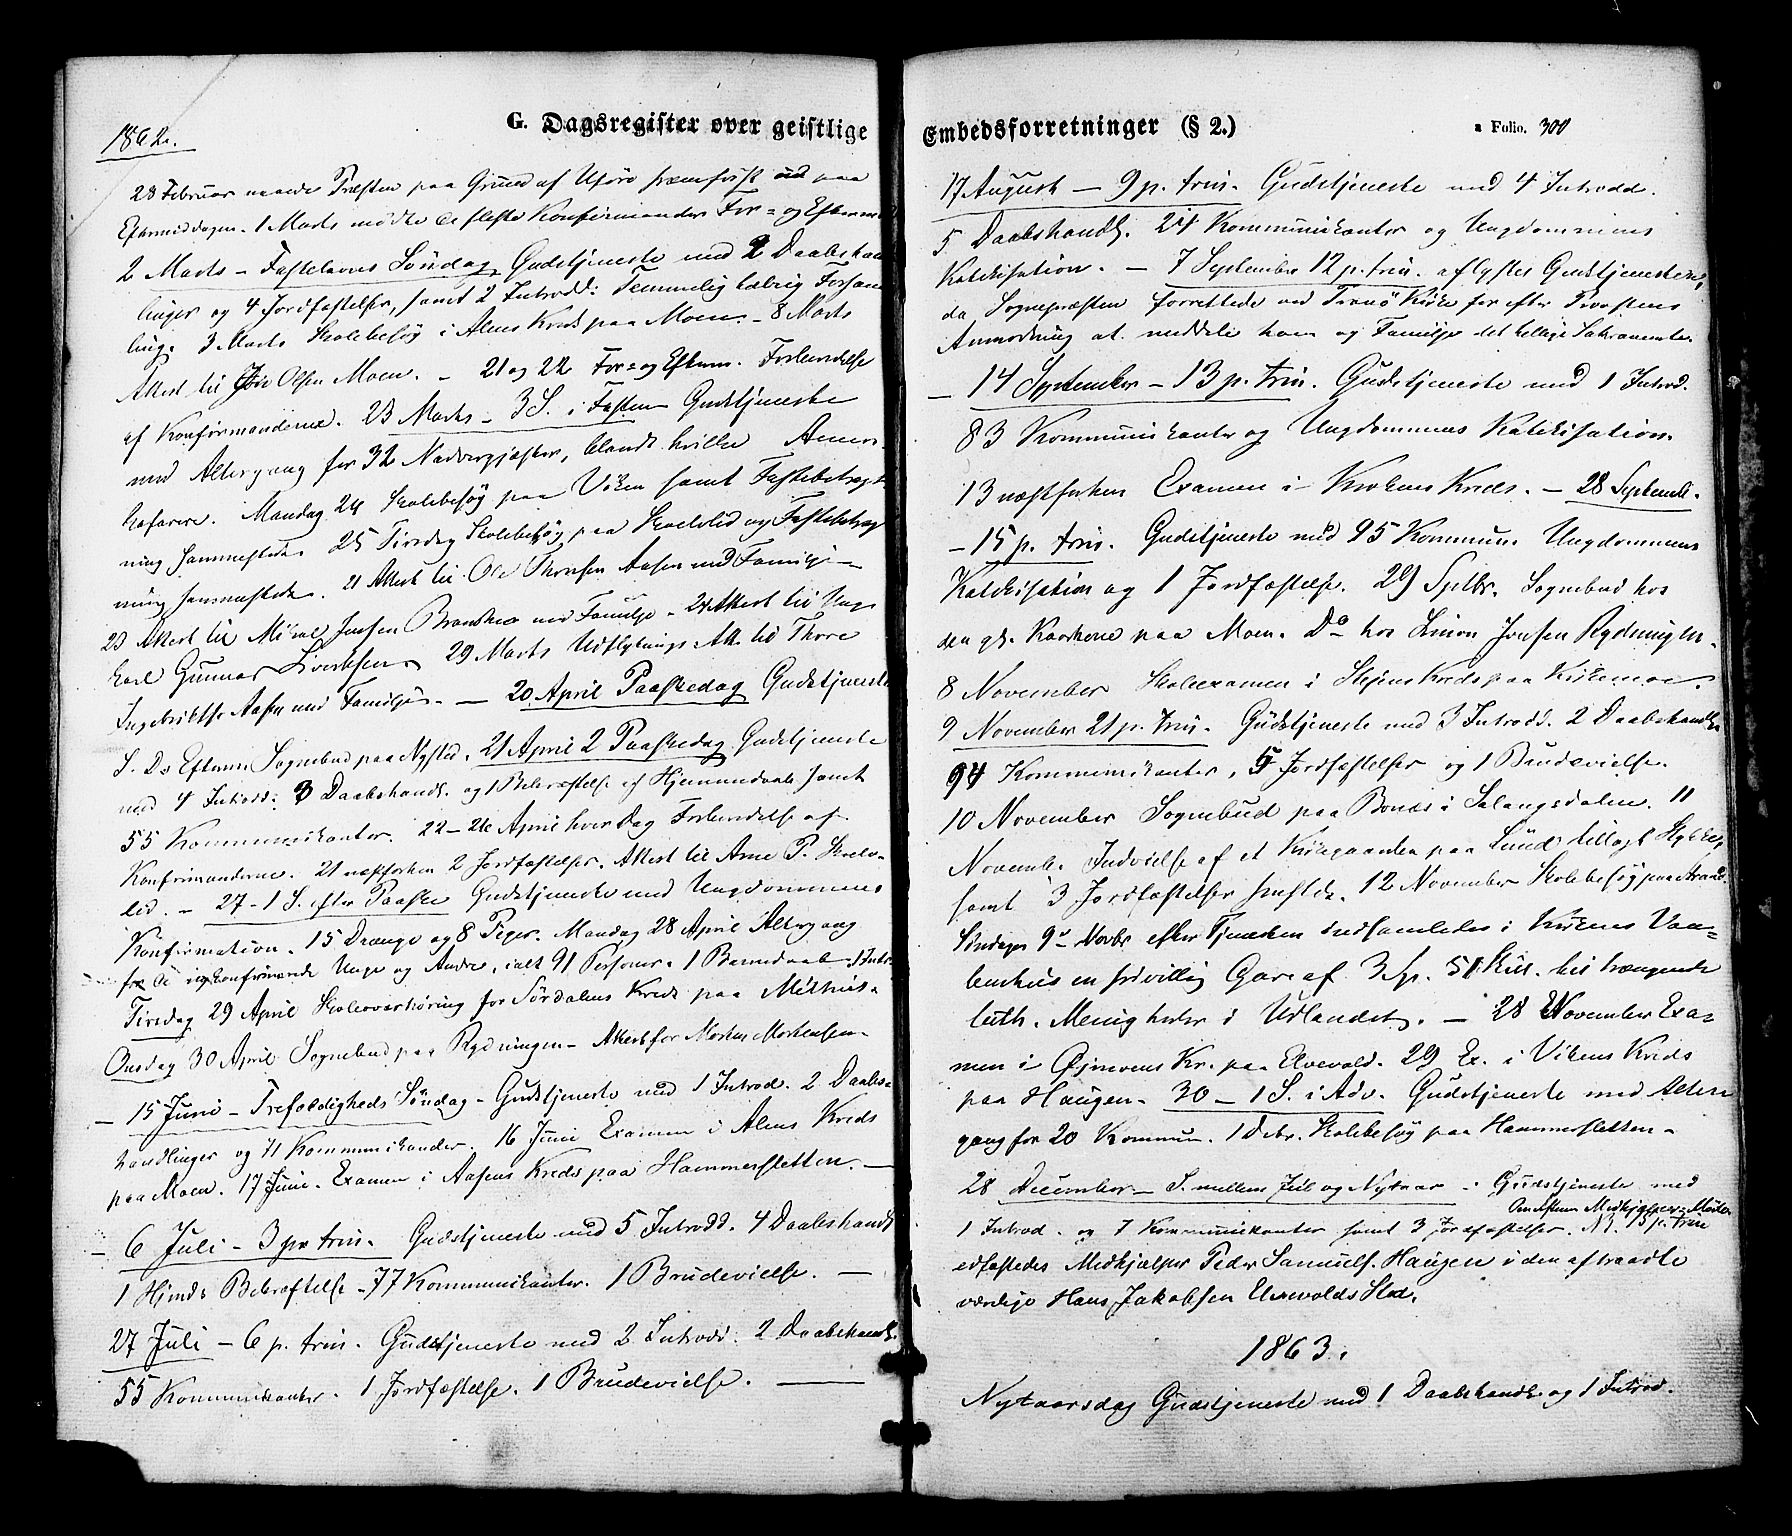 G. Dagsregister over geistlige
1862.
28 Februar naaede Præsten paa Grund af Uføre først paa
Eftermiddagen. 1 Marts mødte de fleste Konfirmander For- og Efterm
2 Marts - Fastelavns Søndag Gudstjeneste med 2 Daabshand
linger og 4 Jordfæstelser, samt 2 Introdd: Temmelig talrig Forsam
ling. 3 Marts Skolebesøg i Alens Kreds paa Moen. - 8 Marts
Attest til Olsen Moen. - 21 og 22 For- og Efterm. Forberedelse
af Konfirmanderne. 23 Marts - 3 S. i Fasten Gudstjeneste
med Altergang for 32 Nadvergjæster, blandt hvilke
Mandag 24 Skolebesøg paa Viken samt Fastebetragt
ning sammesteds. 25 Tirsdag Skolebesøg paa Skoelvlid og Fastebetrag
ning sammesteds. 21 Attest til Ole Thomsen Aasen med Familje -
23 Attest til Mikal Jensen med Familje - 24 Attest til Unge
karl Gunnar Sivertsen. 29 Marts Udflytnings Att. til Thore
Ingebriktse Aasen med Familje. - 20 April Paaskedag Gudstjeneste
S. D. Efterm. Sognebud paa Nysted. 21 April 2 Paaskedag Gudstjeneste
med 4 Introdd: 3 Daabshandl. og 1 Bekræftelse af Hjemmedaab samt
55 Kommunikanter. 22-26 April hver Dag Forberedelse af
Konfirmanderne. 21 næstforhen 2 Jordfæstelser. Attest til Arne P. Skoelv-
lid. - 27 - 1 S. efter Paaske Gudstjeneste med Ungdommens
Konfirmation. 15 Drenge og 8 Piger. Mandag 28 April Altergang
for de nykonfirmerede Unge og Andre, ialt 91 Personer. 1 Barnedaab 1 Intr.
Tirsdag 29 April Skoleoverhøring for Sørdalens Kreds paa
Onsdag 30 April Sognebud paa Rydningen - Attest for Morten Mortensen -
- 15 Juni - Trefoldigheds Søndag - Gudstjeneste med 1 Introd. 2 Daabs-
handlinger og 71 Kommunikander. 16 Juni Examen i Alens Kreds
paa Moen. 17 Juni. Examen i Aasens Kreds paa Hammersletten. -
- 6 Juli - 3 p. trin. Gudstjeneste med 5 Introdd. 4 Daabshandl
1 Hjmds Bekræftelse - 77 Kommunikanter. 1 Brudevielse. -
27 Juli - 6 p. trin. Gudstjeneste med 2 Introdd. 2 Daabshandl.
55 Kommunikanter. 1 Jordfæstelse. 1 Brudevielse. -
Embedsforretninger (§ 2.)
Folio. 300
17 August - 9 p. trin. Gudstjeneste med 4 Introdd.
5 Daabshandl. 24 Kommunikanter og Ungdommens
Katekisation. - 7 September 12 p. trin. aflystes Gudstjenesten,
da Sognepræsten forrettede ved Tranø Kirke for efter Provstens
Anmodning at meddele ham og Familje det hellige Sakramente.
- 14 September - 13 p. trin. Gudstjeneste med 1 Introd.
83 Kommunikanter og Ungdommens Katekisation.
13 næstforhen Examen i Kirkens Kreds. - 28 Septemb.
- 15 p. trin. Gudstjeneste med 95 Kommun. Ungdommens
Katekisation og 1 Jordfæstelse. 29 Septbr. Sognebud hos
den gl. paa Moen. Do hos Simon Jensen Rydningen.
8 November Skoleexamen i Kreds paa Kirkemoe.
9 November 21 p. trin. Gudstjeneste med 3 Introdd. 2 Daabshandl.
94 Kommunikanter, 5 Jordfæstelser og 1 Brudevielse.
10 November Sognebud paa Bones i Salangsdalen. 11
Novemb. Indvielse af et Kirkegaarden paa Lund tillagt Stykke,
samt 3 Jordfæstelser smstds. 12 November Skolebesøg paa Strand.
Søndagen 9de Novbr. efter Tjenesten indsamledes i Kirkens Vaa-
benhus en frivillig Gave af 3 Sp. 51 Skill. til trængende
luth. Menigheder i Udlandet. - 28 November Exa-
men i Øjnevens Kr. paa Elvevold. 29 Ex. i Vikens Kreds
paa Haugen. 30 - 1 S. i Adv. Gudstjeneste med Alter
gang for 20 Kommun. 1 Debr. Skolebesøg paa Hammersletten -
28 December - S. mellem Jul og Nytaar - Gudstjeneste med
1 Introd. og 7 Kommunikanter samt 3 Jordfæstelser. 15 p. trin
edfæstedes Medhjælper Peder Samuels. Haugen i den aftraadte
værdige Hans Jakobsen Elvevolds Sted.
1863.
Nytaarsdag Gudstjeneste med 1 Daabshandl. og 1 Introd.